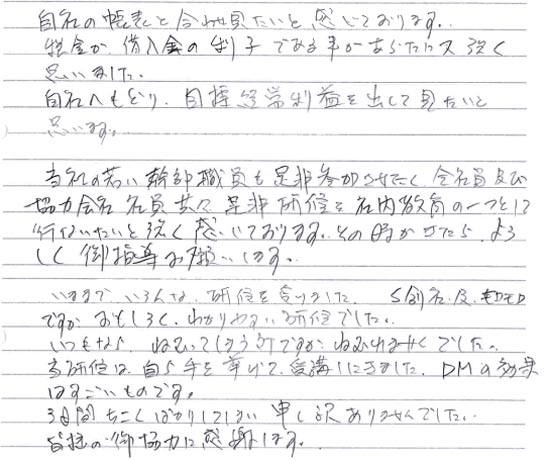 自社の帳表と合わせ見たいと感じております。
税金が、借入金の利子である事があらためて強く
思いました。
自社へもどり、自社経常利益を出して見たいと
思います。
当社の若い幹部職員も是非参加させたく、会社員及び
協力会社社員共々是非研修を社内教育の一つとして
行ないたいと強く感じております。その時がきたら、よろ
しく御指導お願いします。
いままで いろんな、研修を受けました
ですが おもしろく、わかりやすい研修でした。
いつもなら、ねむいてしまう所ですが、ねむれませんでした。
当研修は、自ら手を挙げて、受講しにきました。DMの効果
はすごいものです。
3日間ちこくばかりしてしまい申し訳ありませんでした。
皆様の御協力に感謝します。